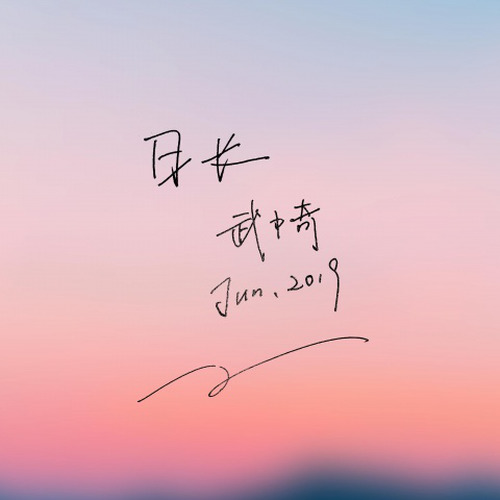 日长
武中奇
Jun. 2019